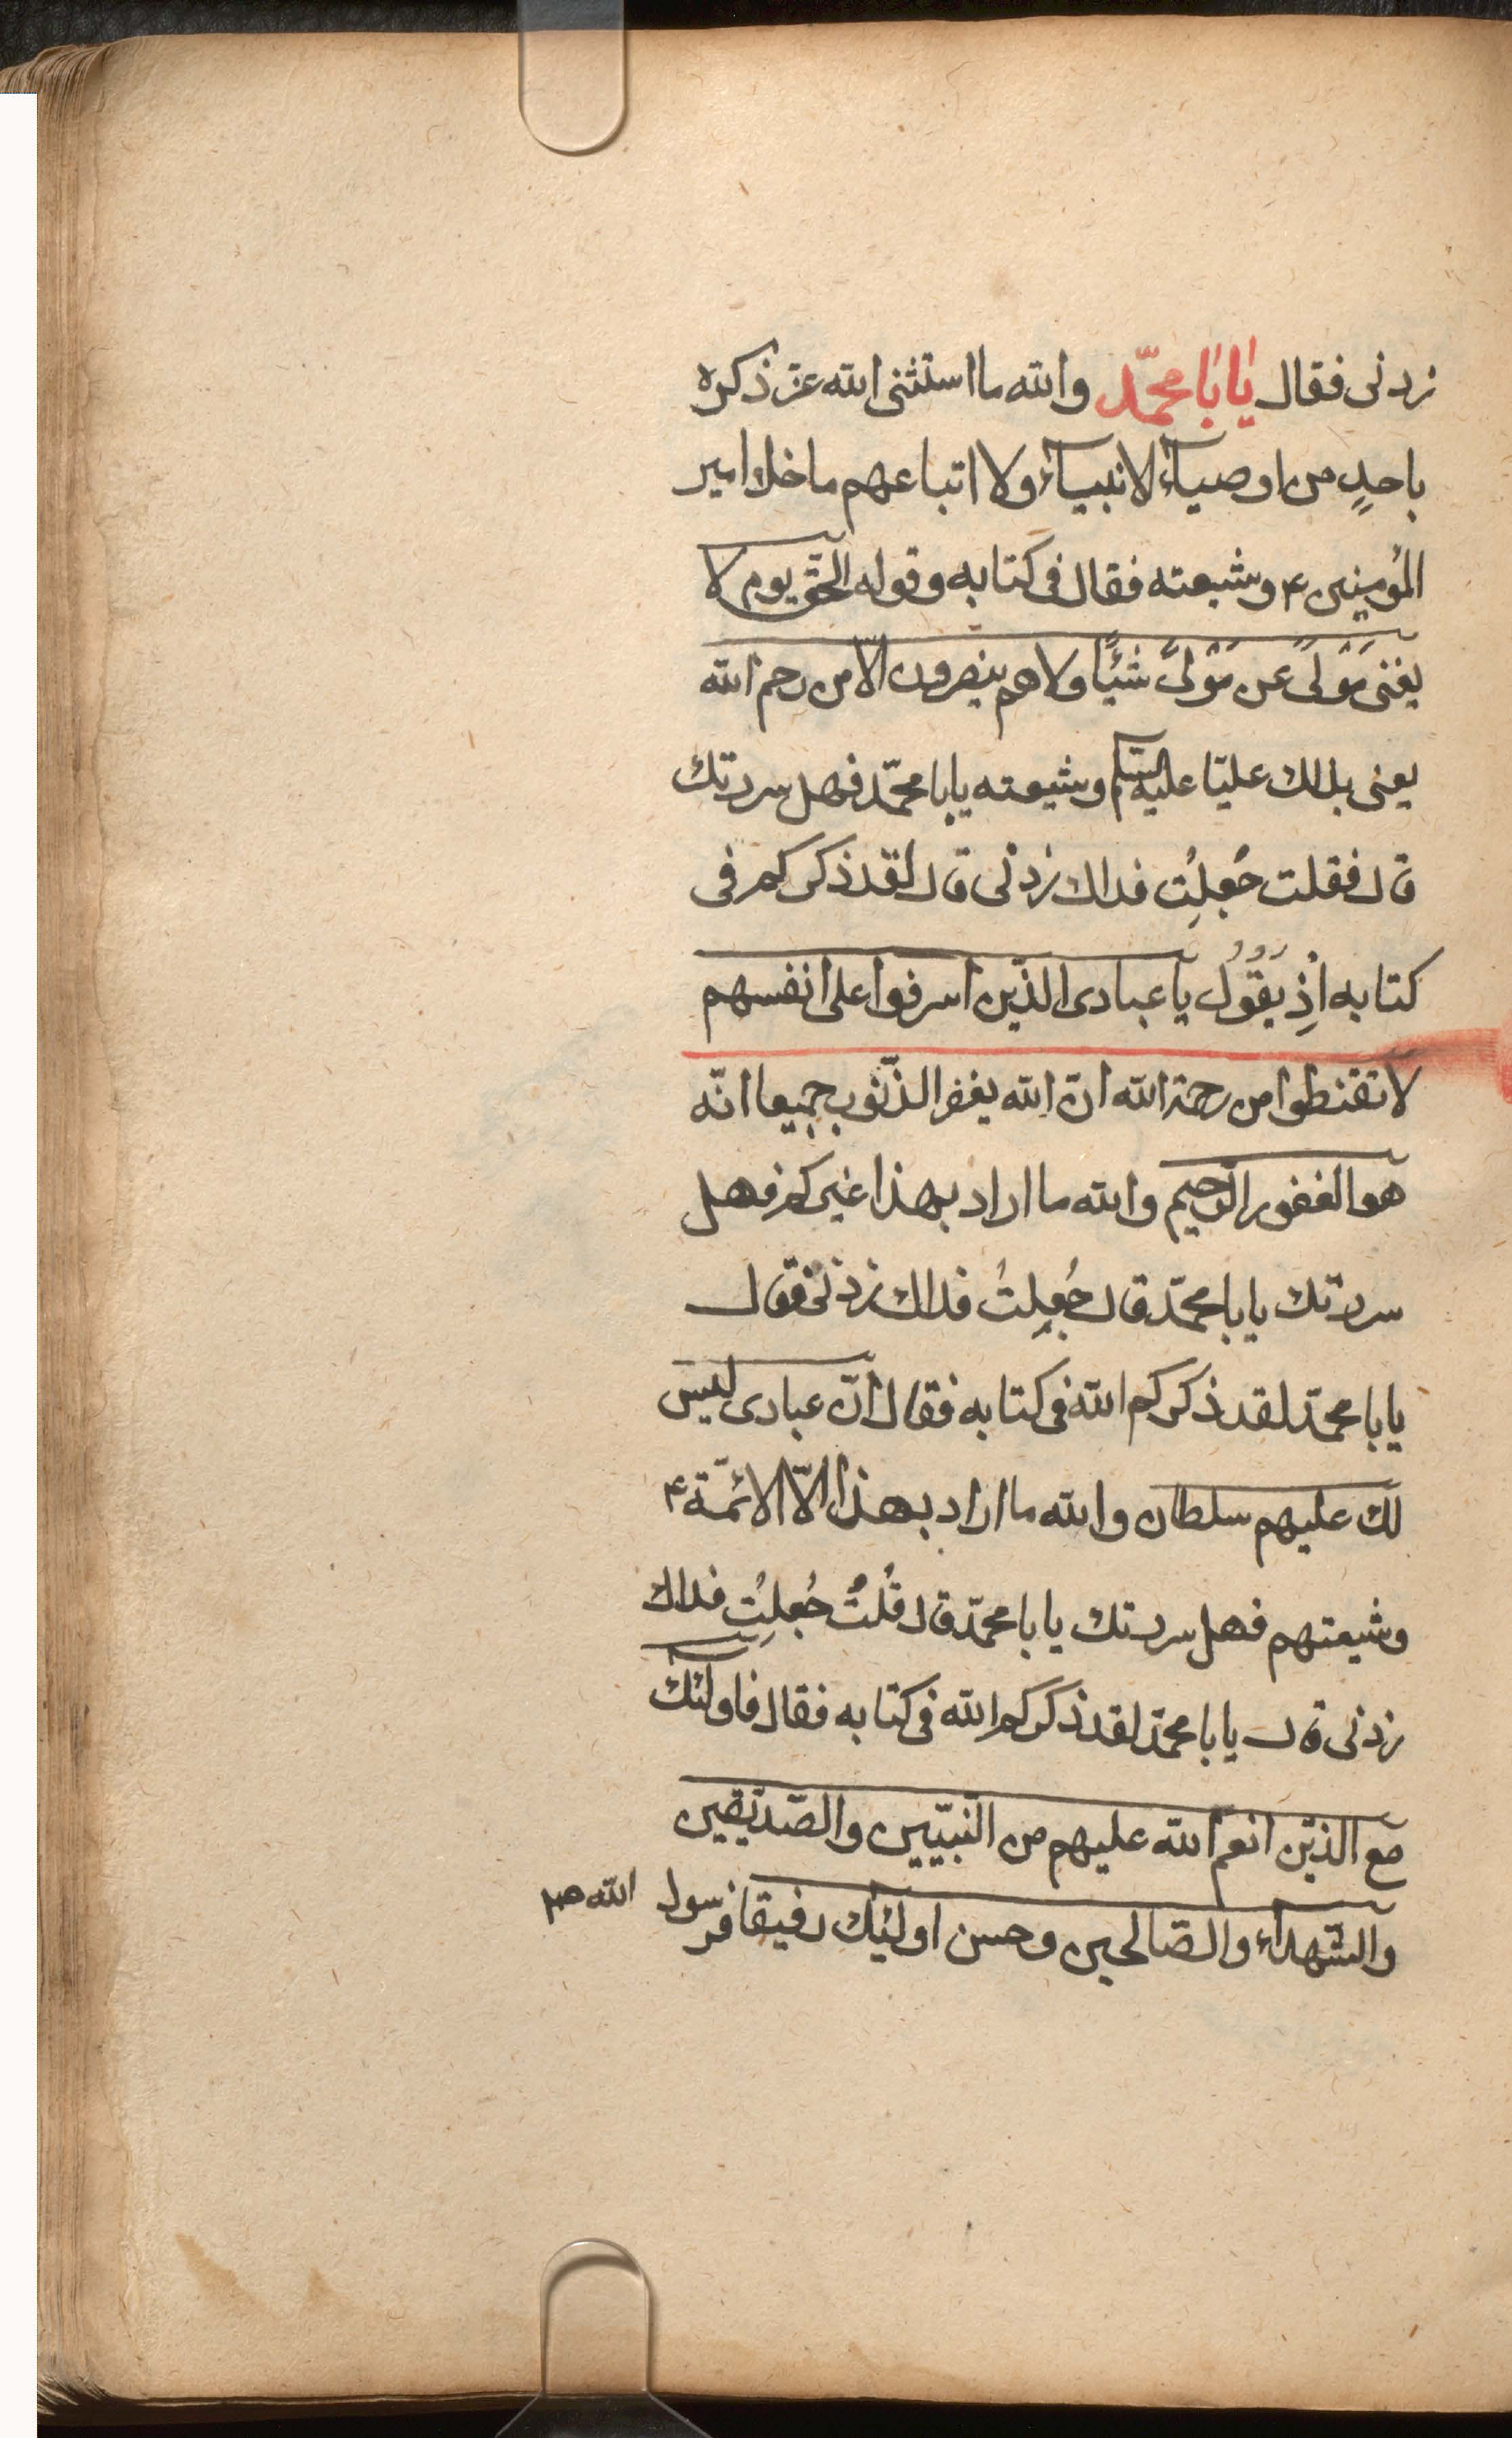 زدنی فقال یابا محمّد والله ما استثنی الله عزّ ذکره
باحدٍ من اوصیاء الانبیاء ولا اتباعهم ما خلا امیر
المؤمنین ۴ وشیعته فقال فی کتابه وقوله الحقّ یوم لا
یغنی مَوْلیً عن مَوْلیً شَیْئًا ولا هم ینصرون الّا من رحم الله
یعنی بذلك علیّا علیه السلم وشیعته یابا محمّد فهل سررتك
قال فقلت جُعِلتُ فداك زدنی قال لقد ذکرکم فی
کتابه اِذْ یَقُوْلُ یا عبادی الذّین اسرفوا علی انفسهم
لا تقنطوا من رحمة الله انّ الله یغفر الذّنوب جمیعا انّه
هو الغفور الرّحیم والله ما اراد بهذا غیرکم فهل
سررتك یابا محمّد قال جُعِلتُ فداك زدنی فقال
یابا محمّد لقد ذکرکم الله فی کتابه فقال انّ عبادی لیس
لك علیهم سلطان والله ما اراد بهذا الّا الائمّة ۴
وشیعتهم فهل سررتك یابا محمّد قال قُلتُ جُعِلتُ فداك
زدنی قال یابا محمّد لقد ذکرکم الله فی کتابه فقال فاولئك
مع الذّین انعم الله علیهم من النّبیّین والصّدّیقین
والشّهداء والصّالحین وحسن اولئِك رفیقا فرسول الله صم